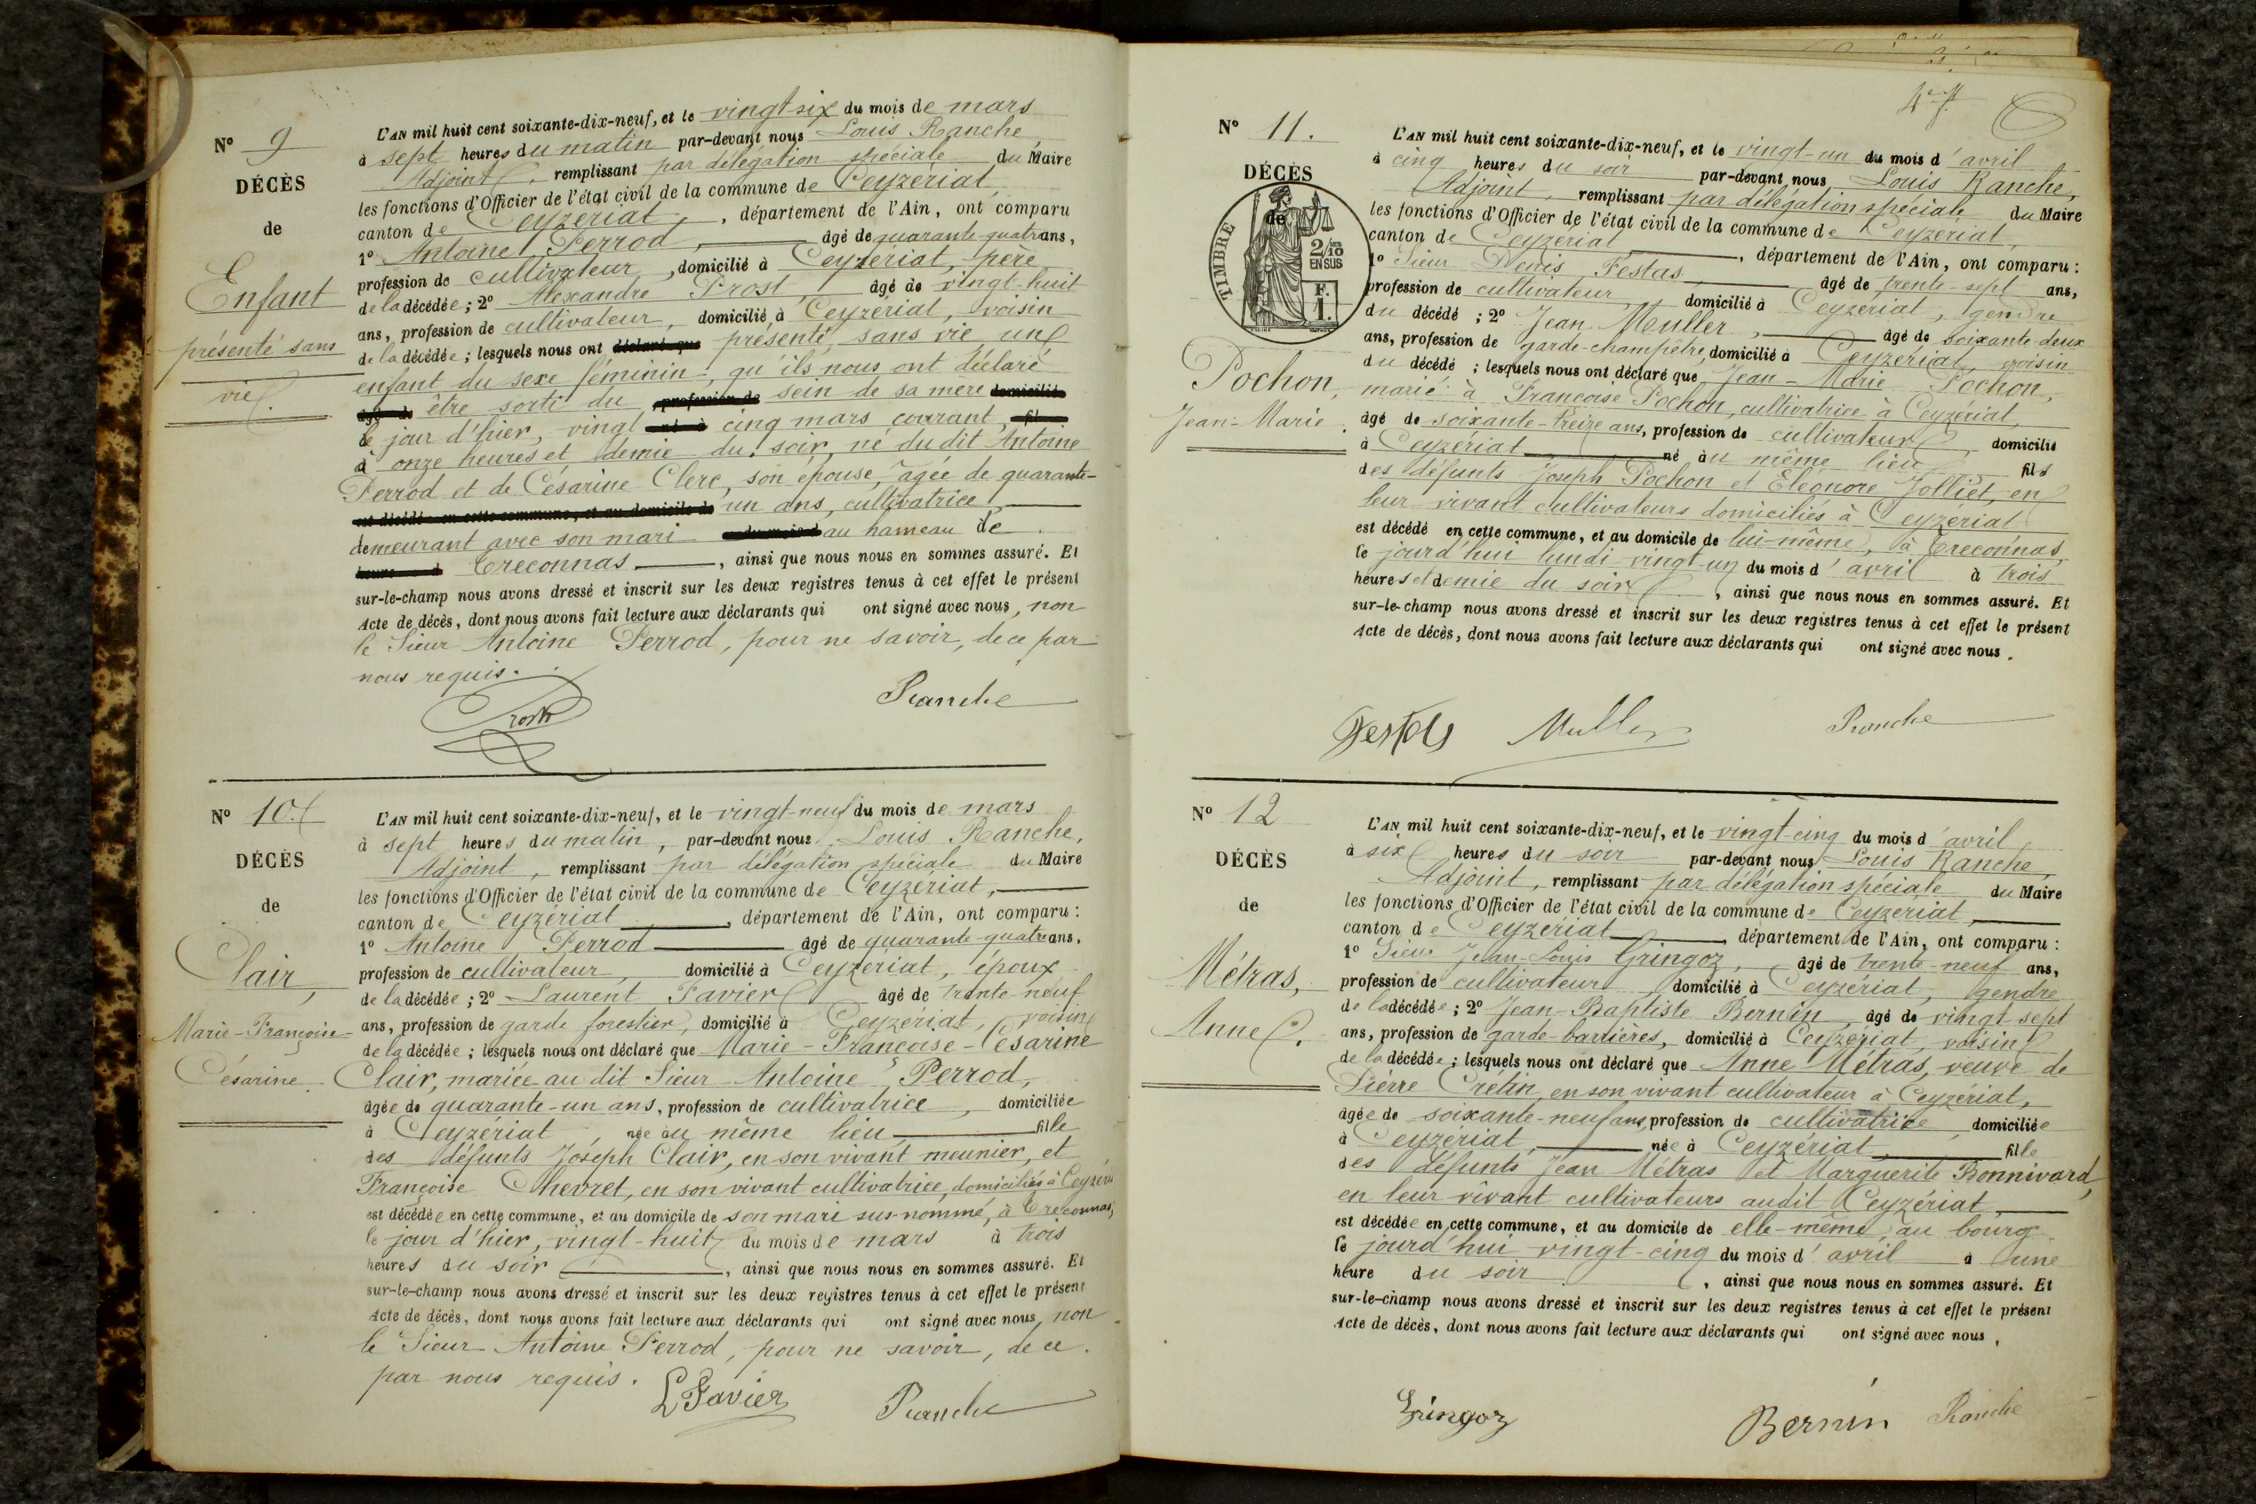 N° 9
DÉCÈS
de
Enfant
présenté sans
vie.
L'AN mil huit cent soixante-dix-neuf, et le vingt-six du mois de mars
à sept heures du matin par-devant nous Louis Ranche
Adjoint, remplissant par délégation spéciale du Maire
les fonctions d'Officier de l'état civil de la commune de Ceyzériat,
canton de Ceyzériat, département de l'Ain, ont comparu
1° Antoine Perrod, âgé de quarante-quatre ans,
profession de cultivateur, domicilié à Ceyzériat, père
de la décédée; 2° Alexandre Prost, âgé de vingt-huit
ans, profession de cultivateur, domicilié à Ceyzériat, voisin
de la décédée; lesquels nous ont déclaré que présenté sans vie un
enfant du sexe féminin, qu'ils nous ont déclaré
âgé de être sorti du profession de sein de sa mère domicilié
le jour d'hier, vingt né à cinq mars courant, fil
à onze heures et demie du soir, né du dit Antoine
Perrod et de Césarine Clerc, son épouse, âgée de quarante-
est décédé en cette commune, et au domicile de un ans, cultivatrice
demeurant avec son mari du mois d au hameau de
heure d Treconnas, ainsi que nous nous en sommes assuré. Et
sur-le-champ nous avons dressé et inscrit sur les deux registres tenus à cet effet le présent
Acte de décès, dont nous avons fait lecture aux déclarants qui ont signé avec nous, non
le Sieur Antoine Perrod, pour ne savoir, de ce par
nous requis.
Prost Ranche
N° 10.
DÉCÈS
de
Clair,
Marie-Françoise-
Césarine.
L'AN mil huit cent soixante-dix-neuf, et le vingt-neuf du mois de mars
à sept heures du matin, par-devant nous Louis Ranche,
Adjoint, remplissant par délégation spéciale du Maire
les fonctions d'Officier de l'état civil de la commune de Ceyzériat,
canton de Ceyzériat, département de l'Ain, ont comparu:
1° Antoine Perrod âgé de quarante-quatre ans,
profession de cultivateur, domicilié à Ceyzériat, époux
de la décédée; 2° Laurent Favier âgé de trente-neuf
ans, profession de garde forestier, domicilié à Ceyzériat, voisin
de la décédée; lesquels nous ont déclaré que Marie-Françoise-Césarine
Clair, mariée au dit Sieur Antoine Perrod,
âgée de quarante-un ans, profession de cultivatrice, domiciliée
à Ceyzériat née au même lieu, fille
des défunts Joseph Clair, en son vivant meunier, et
Françoise Chevret, en son vivant cultivatrice, domiciliés à Ceyzéri
est décédée en cette commune, et au domicile de son mari sus-nommé, à Treconnas,
le jour d'hier, vingt-huit du mois de mars à trois
heures du soir, ainsi que nous nous en sommes assuré. Et
sur-le-champ nous avons dressé et inscrit sur les deux registres tenus à cet effet le présent
Acte de décès, dont nous avons fait lecture aux déclarants qui ont signé avec nous, non
le Sieur Antoine Perrod, pour ne savoir, de ce
par nous requis.
L Favier Ranche
N° 11.
DÉCÈS
de
TIMBRE
2/10
EN SUS
F.
1.
Pochon,
Jean-Marie.
L'AN mil huit cent soixante-dix-neuf, et le vingt-un du mois d'avril
à cinq heures du soir par-devant nous Louis Ranche,
Adjoint, remplissant par délégation spéciale du Maire
les fonctions d'Officier de l'état civil de la commune de Ceyzériat,
canton de Ceyzériat, département de l'Ain, ont comparu:
1° Sieur Denis Festas, âgé de trente-sept ans,
profession de cultivateur, domicilié à Ceyzériat, gendre
du décédé; 2° Jean Muller, âgé de soixante-deux
ans, profession de garde-champêtre, domicilié à Ceyzériat, voisin
du décédé; lesquels nous ont déclaré que Jean-Marie Pochon,
marié à Françoise Pochon, cultivatrice à Ceyzériat,
âgé de soixante-treize ans, profession de cultivateur, domicilié
à Ceyzériat né au même lieu fils
des défunts Joseph Pochon et Eléonore Jolliet, en
leur vivant cultivateurs domiciliés à Ceyzériat
est décédé en cette commune, et au domicile de lui-même, à Treconnas,
le jourd'hui lundi vingt-un du mois d'avril à trois
heures et demie du soir, ainsi que nous nous en sommes assuré. Et
sur-le-champ nous avons dressé et inscrit sur les deux registres tenus à cet effet le présent
Acte de décès, dont nous avons fait lecture aux déclarants qui ont signé avec nous.
Festas Muller Ranche
N° 12
DÉCÈS
de
Métras,
Anne.
L'AN mil huit cent soixante-dix-neuf, et le vingt-cinq du mois d'avril
à six heures du soir par-devant nous Louis Ranche,
Adjoint, remplissant par délégation spéciale du Maire
les fonctions d'Officier de l'état civil de la commune de Ceyzériat,
canton de Ceyzériat, département de l'Ain, ont comparu:
1° Sieur Jean-Louis Gringoz, âgé de trente-neuf ans,
profession de cultivateur, domicilié à Ceyzériat, gendre
de la décédée; 2° Jean-Baptiste Bernin, âgé de vingt-sept
ans, profession de garde-barrières, domicilié à Ceyzériat, voisin
de la décédée; lesquels nous ont déclaré que Anne Métras, veuve de
Pierre Crétin, en son vivant cultivateur à Ceyzériat,
âgée de soixante-neuf ans, profession de cultivatrice, domiciliée
à Ceyzériat, née à Ceyzériat, fille
des défunts Jean Métras et Marguerite Bonnivard,
en leur vivant cultivateurs audit Ceyzériat,
est décédée en cette commune, et au domicile de elle-même, au bourg
le jourd'hui vingt-cinq du mois d'avril à une
heure du soir, ainsi que nous nous en sommes assuré. Et
sur-le-champ nous avons dressé et inscrit sur les deux registres tenus à cet effet le présent
Acte de décès, dont nous avons fait lecture aux déclarants qui ont signé avec nous.
Gringoz Bernin Ranche